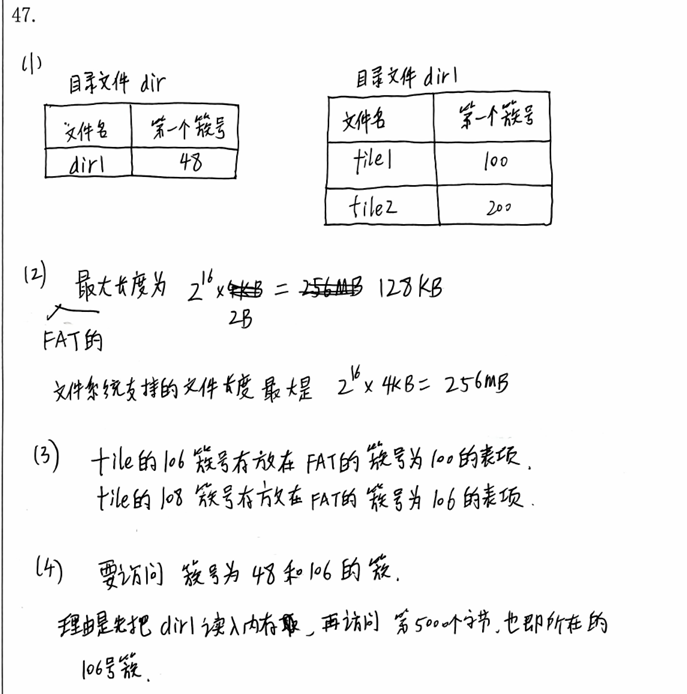 47.
(1)
目录文件 dir
文件名 第一个簇号
dir1 48
目录文件 dir1
文件名 第一个簇号
file1 100
file2 200
(2) FAT的最大长度为 2^16×2B = 128KB
文件系统支持的文件长度最大是 2^16×4KB = 256MB
(3) file的106簇号存放在FAT的簇号为100的表项.
file的108簇号存放在FAT的簇号为106的表项.
(4) 要访问簇号为48和106的簇.
理由是先把dir1读入内存,再访问第5000个字节,也即所在的
106号簇.